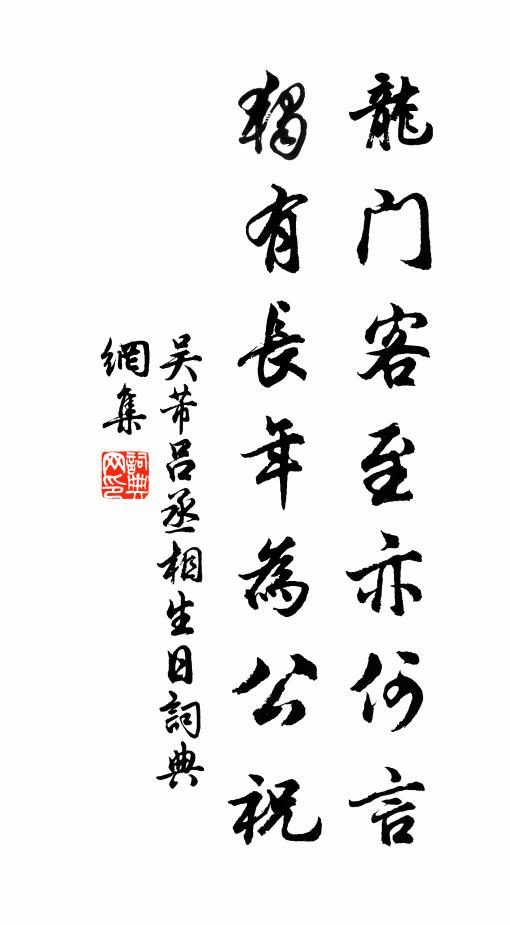 龍门客至亦何言
獨有長年為公祝
吴芾吕丞相生日詞典
網集
詞典
网印